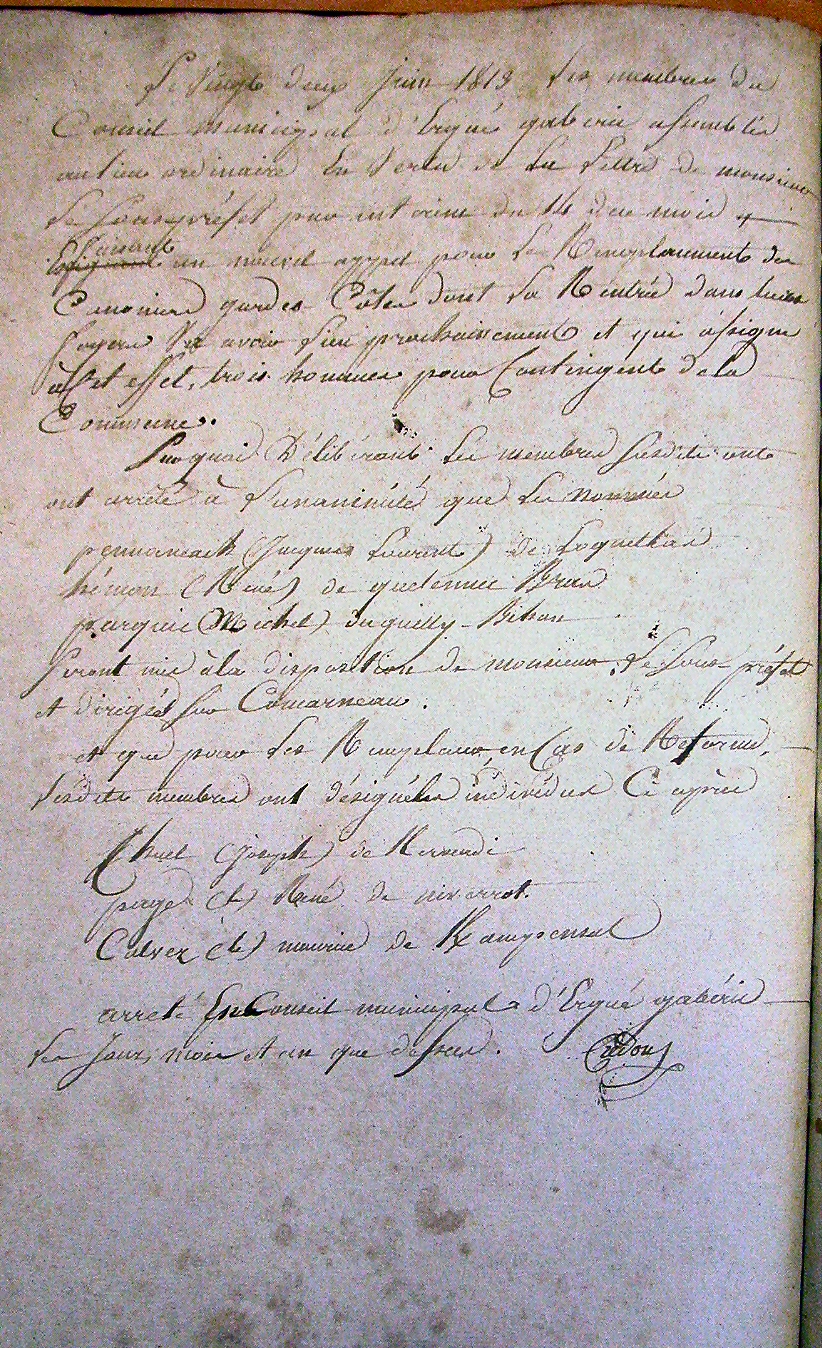 Le Vingt deux juin 1813 Les membres du
Conseil municipal d'Ergué gaberic assemblés
au lieu ordinaire En Vertu de La Lettre de monsieur
Le Sous préfet par interim du 14 du mois
faisant un nouvel appel pour Le Remplacement des
Canoniers gardes Côtes dont La Rentrée dans leurs
foyers Va avoir Lieu prochainement et qui assigne
à Cet effet, trois hommes pour Contingent de la
Commune.
Sur quoi Délibérant Les membres susdits ont
ont arrêté à L'unanimité que Les nommés
pennaneach (Jacques Laurent) de Loquelhas
hémon (René) de quelennec Bras
(Michel) du guilly Bihan
Seront mis à la disposition de monsieur Le sous préfet
et dirigés sur Concarneau.
et que pour Les Remplacer, en Cas de Reforme,
Lesdits membres ont désigné les individus Ci après
Huet (Joseph) de Kernaudi
page (le) René de niverrot.
Calvez (le) maurice de Kampensal
arreté En Conseil municipal d'Ergué gabéric
Les Jour, mois et an que dessus. Credou